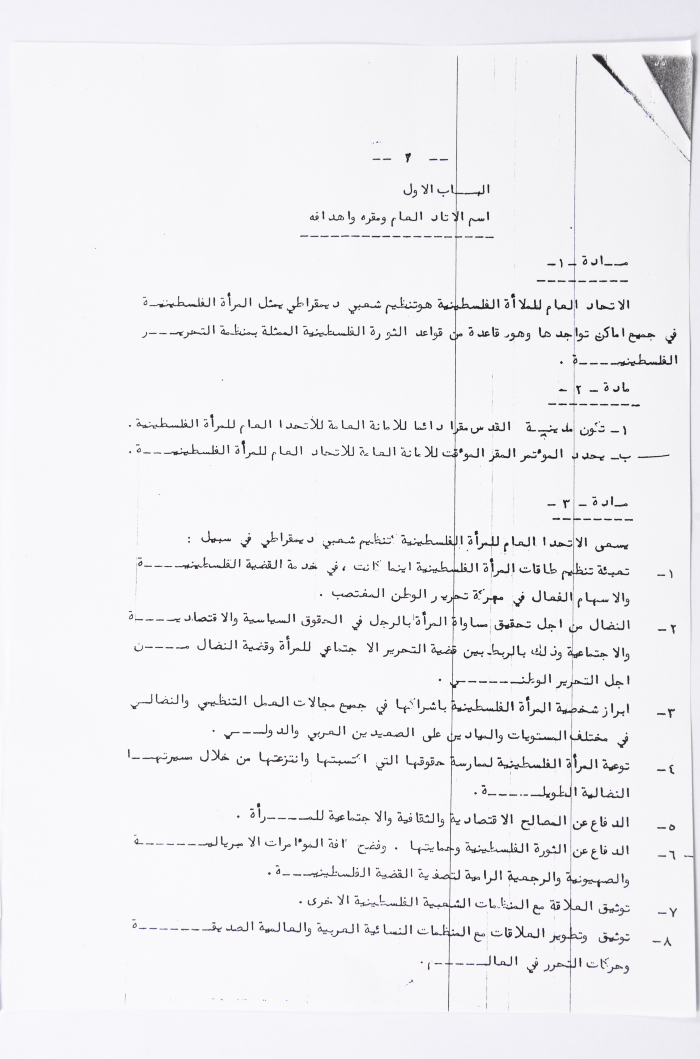 -- ٢ --
البـــاب الاول
اسم الاتاد العام ومقره واهدافه
مـــادة -١-
الاتحاد العام للملاأة الفلسطينية هوتنظيم شعبي ديمقراطي يمثل المرأة الفلسطينيـــة
في جميع اماكن تواجدها وهور قاعدة من قواعد الثورة الفلسطينية الممثلة بمنظمة التحريـــر
الفلسطينيـــــة .
مادة - ٢ -
١- تكون مدينية القدس مقرا دائما للامانة العامة للاتحدا العام للمرأة الفلسطينية .
ب- يحدد الموتمر المقر الموقت للامانة العامة للاتحاد العام للمرأة الفلسطينيـــة .
مـــادة - ٣ -
يسعى الاتحدا العام للمرأة الفلسطينية كتنظيم شعبي ديمقراطي في سبيل :
١- تعبئة تنظيم طاقات المرأة الفلسطينية اينما كانت ، في خدمة القضية الفلسطينيـــــة
والاسهام الفعال في معركة تحرير الوطن المغتصب .
٢- النضال من اجل تحقيق مساواة المرأة بالرجل في الحقوق السياسية والاقتصاديـــــة
والاجتماعية وذلك بالربط بين قضية التحرير الاجتماعي للمرأة وقضية النضال مـــــن
اجل التحرير الوطنـــــــي .
٣- ابراز شخصية المرأة الفلسطينية باشراكها في جميع مجالات العمل التنظيمي والنضالـي
في مختلف المستويات والميادين على الصعيدين العربي والدولـــــي .
٤- توعية المرأة الفلسطينية لممارسة حقوقها التي اكتسبتها وانتزعتها من خلال مسيرتهـــا
النضالية الطويلـــــــة .
٥- الدفاع عن المصالح الاقتصادية والثقافية والاجتماعية للمـــــرأة .
٦- الدفاع عن الثورة الفلسطينية وحمايتها . وفضح كافة الموامرات الامبرياليـــــــة
والصهيونية والرجعية الرامية لتصفية القضية الفلسطينيـــــة .
٧- توثيق العلاقة مع المنظمات الشعبية الفلسطينية الاخرى .
٨- توثيق وتطوير العلاقات مع المنظمات النسائية العربية والعالمية الصديقـــــــة
وحركات التحرر في العالـــــــم .